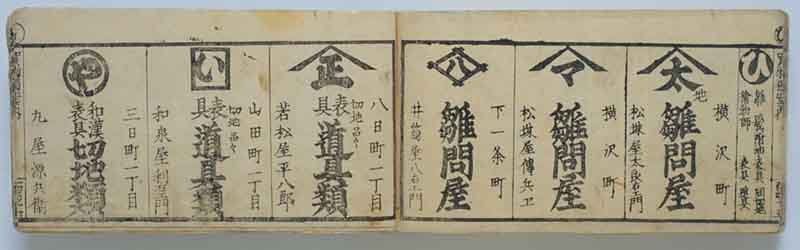 ひ
太
横沢町
地
雛問屋
松坂屋太良右衛門
マ
横沢町
雛問屋
松坂屋傳兵衛
八
下一条町
雛問屋
井筒屋八右衛門
正
八日町一丁目
切地品々
表具
道具類
若松屋平八郎
い
山田町一丁目
切地品々
表具
道具類
和泉屋
や
三日町一丁目
和漢
表具
切地類
丸屋源兵衛